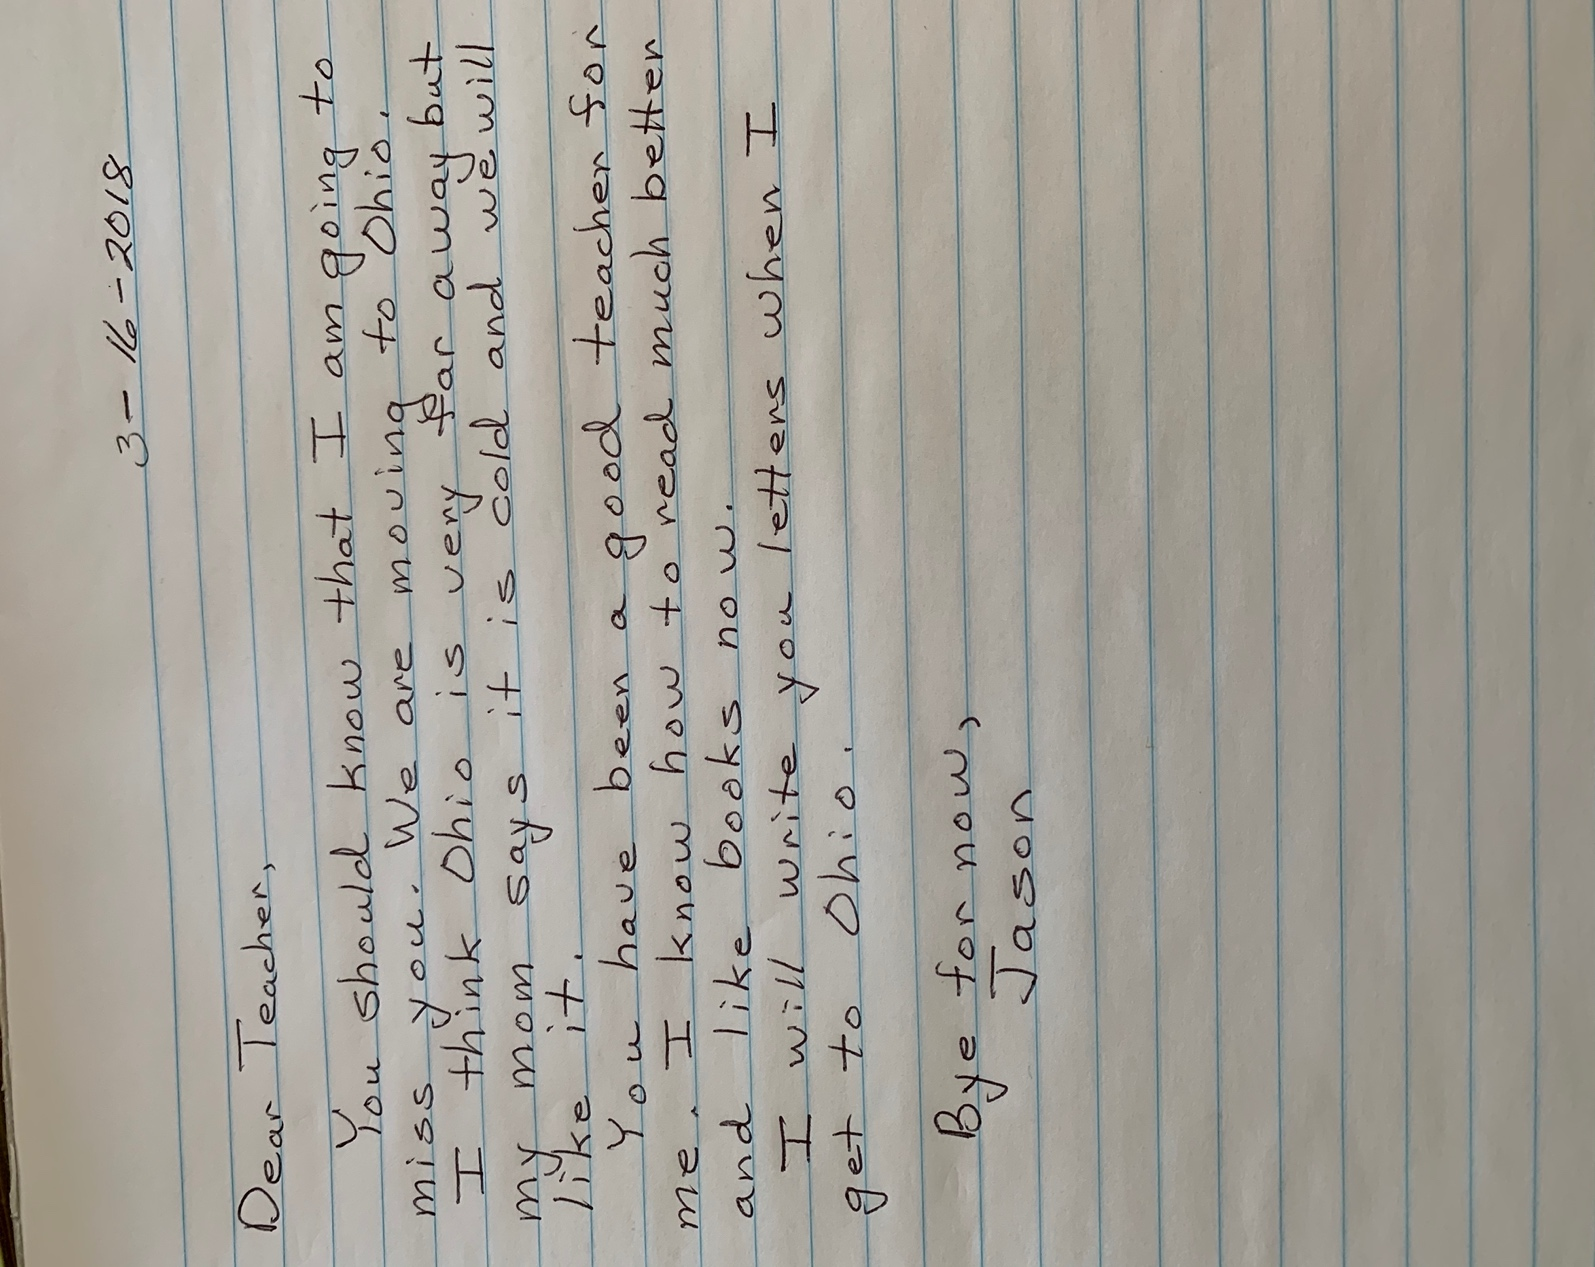 3-16-2018
Dear Teacher,
You should know that I am going to
miss you. We are moving to Ohio.
I think Ohio is very far away but
my mom says it is cold and we will
like it.
You have been a good teacher for
me. I know how to read much better
and like books now.
I will write you letters when I
get to Ohio.
Bye for now,
Jason